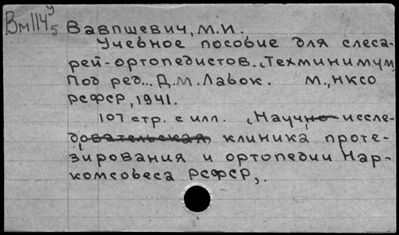 Вм114у5
Вавпшевич, М.И.
Учебное пособие для слеса-
рей-ортопедистов. „Техминимум,
Под ред... Д.М. Лавок. М., НКСО
РСФСР, 1941.
107 стр. с илл. „Научно-иссле-
довательская клиника проте-
зирования и ортопедии Нар-
комсовеса РСФСР„.